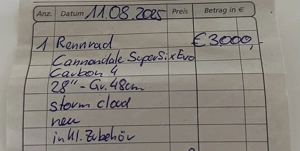 Anz. Datum 11.08.2025 Preis Betrag in €
1 Rennrad €3000,-
Cannondale SuperSixEvo
Carbon 4
28" - Gr. 48cm
storm cloud
neu
inkl. Zubehör